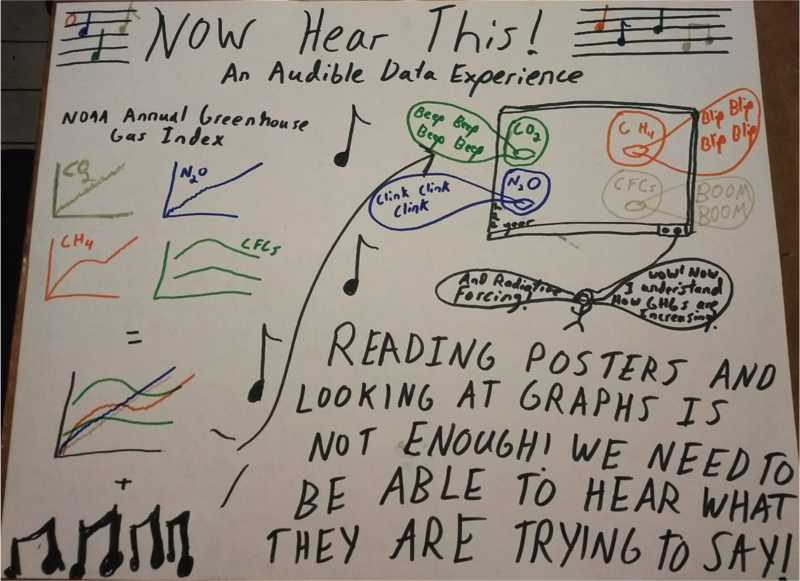 Now Hear This!
An Audible Data Experience
NOAA Annual Greenhouse
Gas Index
CO2
N2O
CH4
CFCs
=
+
Beep Beep
Beep Beep
CO2
CH4
Blip Blip
Blip Blip
Clink Clink
Clink
N2O
CFCs
BOOM
BOOM
year
And Radiative
Forcing!
Wow! Now
I understand
How GHGs are
Increasing!
READING POSTERS AND
LOOKING AT GRAPHS IS
NOT ENOUGH! WE NEED TO
BE ABLE TO HEAR WHAT
THEY ARE TRYING TO SAY!